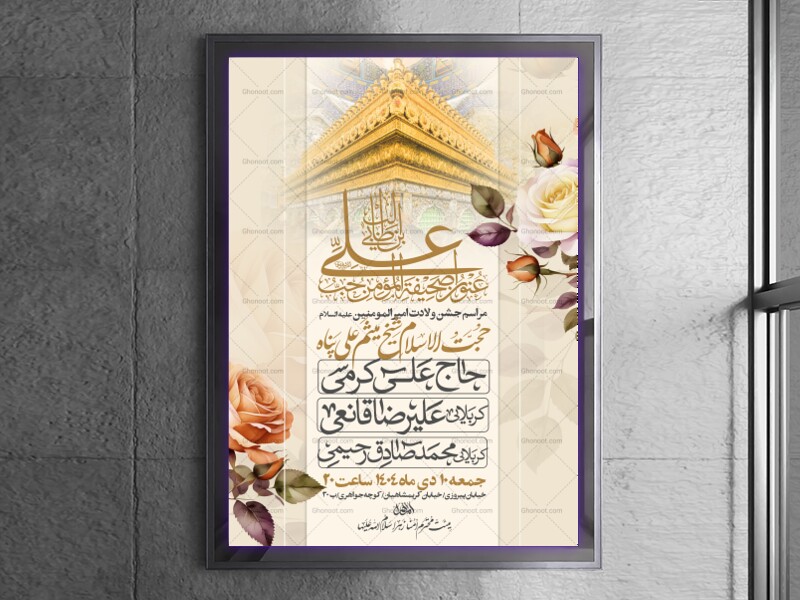 عنوان صحیفة المؤمن حب
علی بن ابی طالب
مراسم جشن ولادت امیرالمومنین علیه‌السلام
حجت الاسلام شیخ میثم علی پناه
حاج علی کرمی
کربلایی علیرضا قانعی
کربلایی محمدصادق رحیمی
جمعه ۱۰ دی ماه ۱۴۰۴ ساعت ۲۰
خیابان پیروزی/ خیابان کریمشاهیان/ کوچه جواهری/پ۳۰
Ghonoot.com